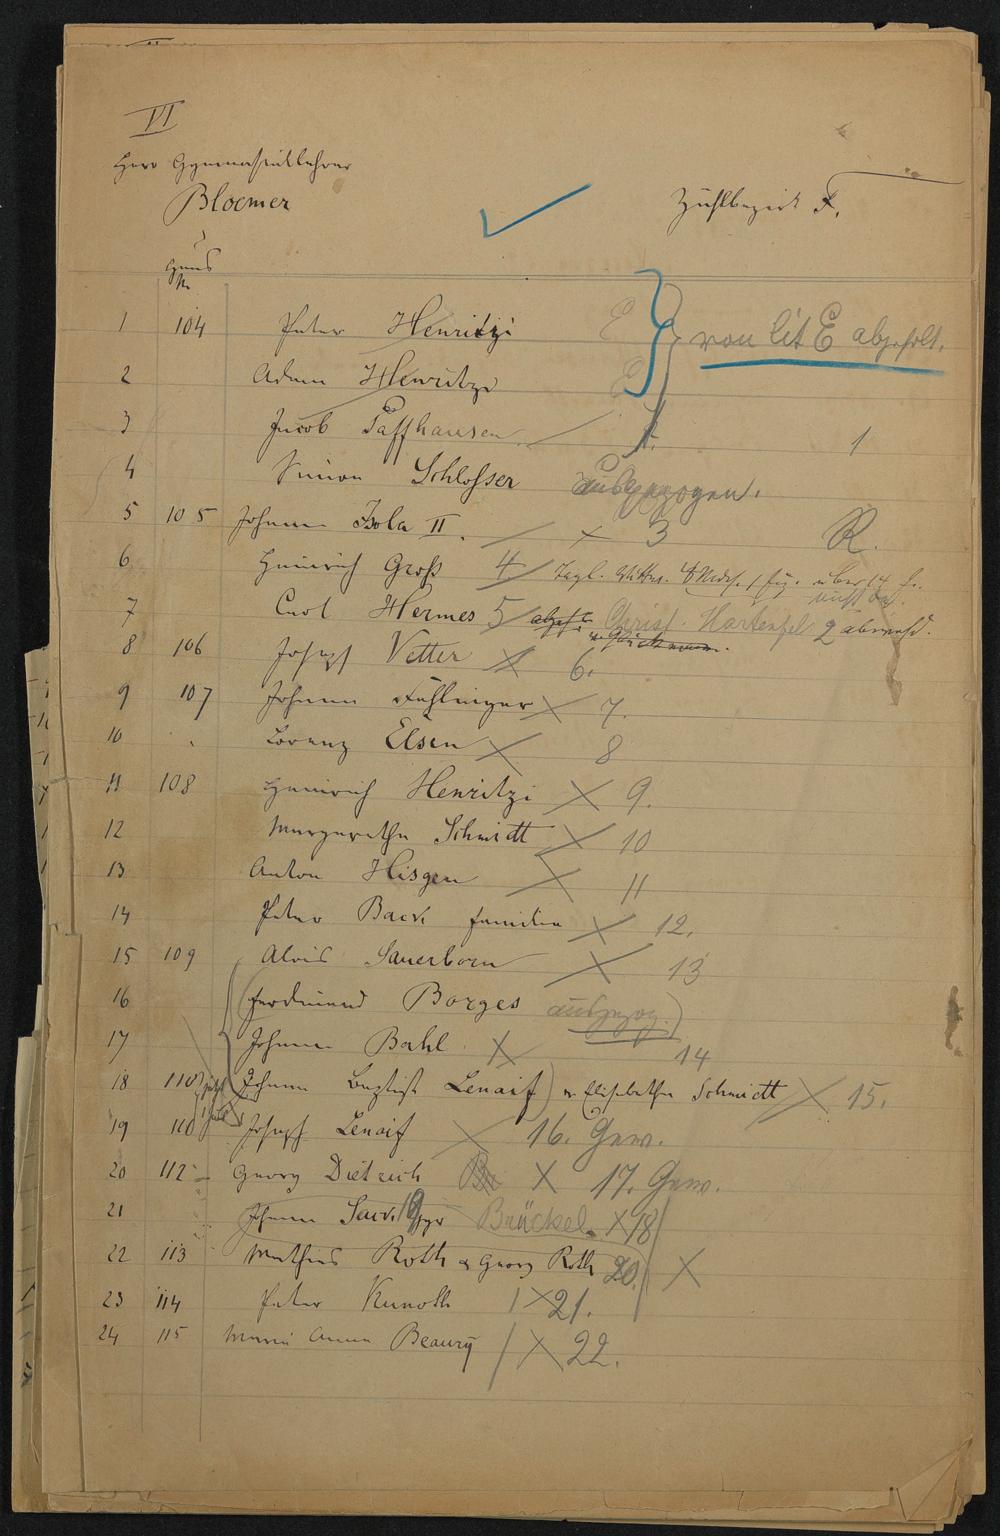 VI
Herr Gymnasiallehrer
Bloemer
Zählbezirk F.
Haus
No
1 104 Peter Henritzi E von lit E abgeholt.
2 Adam Henritzi E
3 Jacob Paffhausen 1
4 Simon Schlosser ausgezogen.
5 105 Johann Isola II. × 3 R.
6 Heinrich Groß 4 über 14 J.
nicht da.
7 Carl Hermes 5 Christ. Hartenfels 2
8 106 Joseph Vetter × 6.
9 107 Johann Fuhlinger × 7.
10 Lorenz Elsen × 8
11 108 Heinrich Henritzi × 9.
12 Margaretha Schmidt × 10
13 Anton Hisgen × 11
14 Peter Back Familie × 12.
15 109 Alois Sauerborn × 13
16 (Ferdinand Borges ausgezog.)
17 Johann Bahl × 14
18 110 (Johann Baptist Lenaif) u. Elisabetha Schmidt × 15.
19 Joseph Lenaif × 16. Gew.
20 112 Georg Dietrich × 17. Gew.
21 Johann Brückel × 18
22 113 Mathias Roth u Georg Roth 20. ×
23 114 Peter Kunoth × 21.
24 115 Maria Anna Beaury × 22.